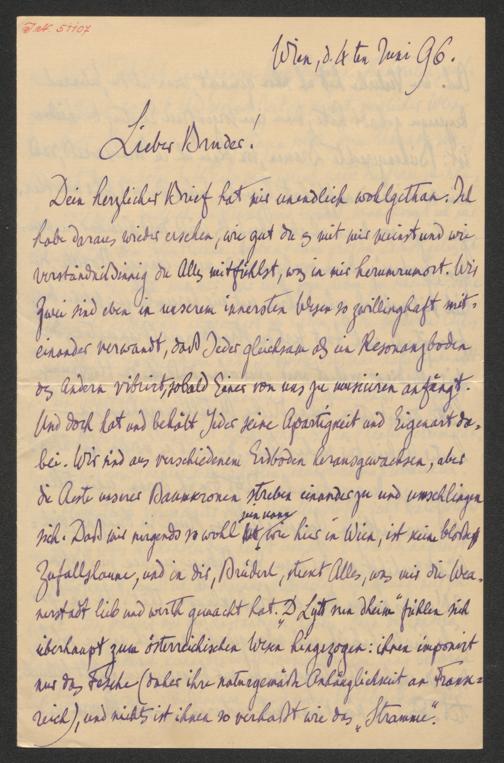 J.N. 59107
Wien, d. 4ten Juni 96.
Lieber Bruder!
Dein herzlicher Brief hat mir unendlich wohlgethan. Ich
habe daraus wieder ersehen, wie gut du es mit mir meinst und wie
verständnißinnig du Alles mitfühlst, was in mir herumrumort. Wir
zwei sind eben in unserem innersten Wesen so zwillinghaft mit-
einander verwandt, daß Jeder gleichsam als ein Resonanzboden
des Andern vibrirt, sobald Einer von uns zu musiciren anfängt.
Und doch hat und behält Jeder seine Apartigkeit und Eigenart da-
bei. Wir sind aus verschiedenem Erdboden herausgewachsen, aber
die Aeste unserer Baumkronen streben einander zu und umschlingen
sich. Daß mir nirgends so wohl wie hier in Wien, ist keine bloße
Zufallslaune, und in dir, Brüderl, steckt Alles, was mir die Wea-
nerstadt lieb und werth gemacht hat. "D'Lytt vun dheim" fühlen sich
überhaupt zum österreichischen Wesen hingezogen: ihnen imponirt
nur das Fesche (daher ihre naturgemäße Anhänglichkeit an Frank-
reich), und nichts ist ihnen so verhaßt wie das "Stramme".